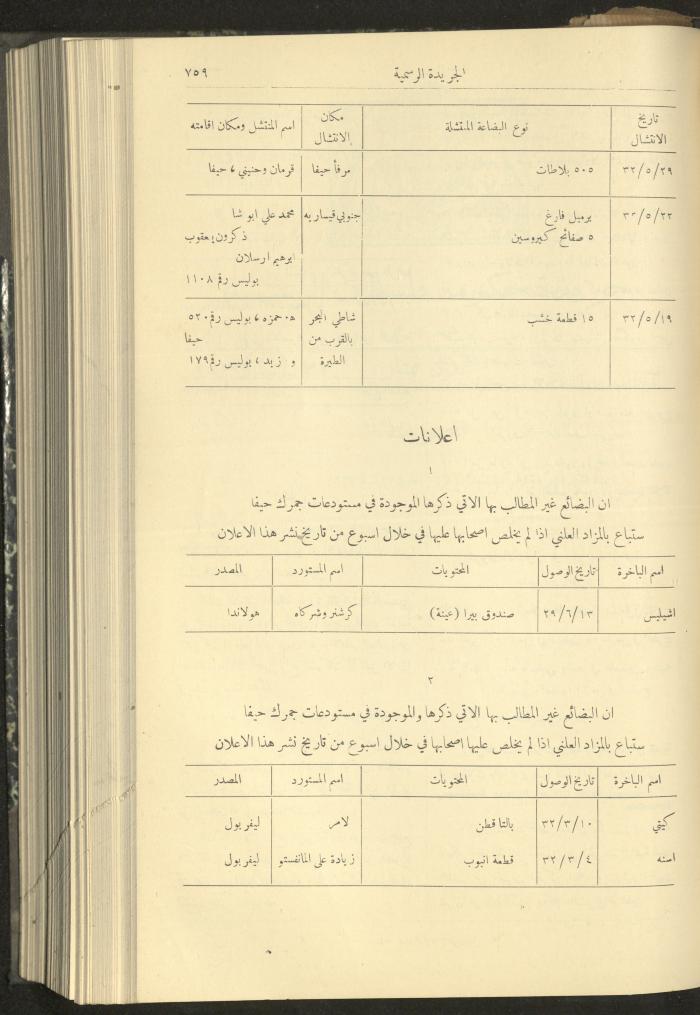 الجريدة الرسمية ٧٥٩
تاريخ الانتشال نوع البضاعة المنتشلة مكان الانتشال اسم المنتشل ومكان اقامته
٣٢/٥/٢٩ ٥٠٥ بلاطات مرفأ حيفا قرمان وحنيني ، حيفا
٣٢/٥/٢٢ برميل فارغ جنوبي قيساريه محمد علي ابو شا
٥ صفائح كيروسين ذكرون يعقوب
ابرهيم ارسلان
بوليس رقم ١١٠٨
٣٢/٥/١٩ ١٥ قطعة خشب شاطي البحر حمزه ، بوليس رقم ٥٢٠
بالقرب من حيفا
الطيرة و زيد ، بوليس رقم ١٧٩
اعلانات
١
ان البضائع غير المطالب بها الاتي ذكرها الموجودة في مستودعات جمرك حيفا
ستباع بالمزاد العلني اذا لم يخلص اصحابها عليها في خلال اسبوع من تاريخ نشر هذا الاعلان
اسم الباخرة تاريخ الوصول المحتويات اسم المستورد المصدر
اشيليس ٢٩/٦/١٣ صندوق بيرا (عينة) كرشنر وشركاه هولاندا
٢
ان البضائع غير المطالب بها الاتي ذكرها والموجودة في مستودعات جمرك حيفا
ستباع بالمزاد العلني اذا لم يخلص عليها اصحابها في خلال اسبوع من تاريخ نشر هذا الاعلان
اسم الباخرة تاريخ الوصول المحتويات اسم المستورد المصدر
كيتي ٣٢/٣/١٠ بالتا قطن لامر ليفربول
اسنه ٣٢/٣/٤ قطعة انبوب زيادة على المانفستو ليفربول